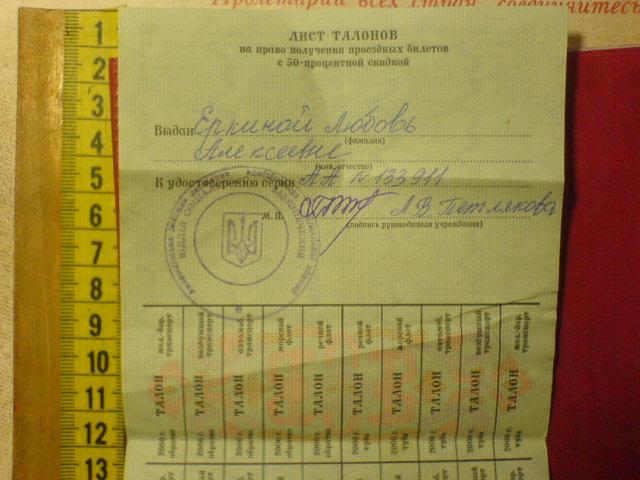 Пролетарии всех стран, соединяйтесь
ЛИСТ ТАЛОНОВ
на право получения проездных билетов
с 50-процентной скидкой
Выдан Еркиной Любовь
(фамилия)
Алексеевне
(имя, отчество)
К удостоверению серии АА № 133911
М. П. Л В Петлякова
(подпись руководителя учреждения)
1
2
3
4
5
6
7
8
9
10
11
12
13
жел.-дор. транспорт
ТАЛОН
2000 г. обратно
воздушный транспорт
ТАЛОН
2000 г. обратно
автомоб. транспорт
ТАЛОН
2000 г. обратно
морской флот
ТАЛОН
2000 г. обратно
речной флот
ТАЛОН
2000 г. обратно
речной флот
ТАЛОН
2000 г. туда
морской флот
ТАЛОН
2000 г. туда
автомоб. транспорт
ТАЛОН
2000 г. туда
воздушный транспорт
ТАЛОН
2000 г. туда
жел.-дор. транспорт
ТАЛОН
2000 г. туда